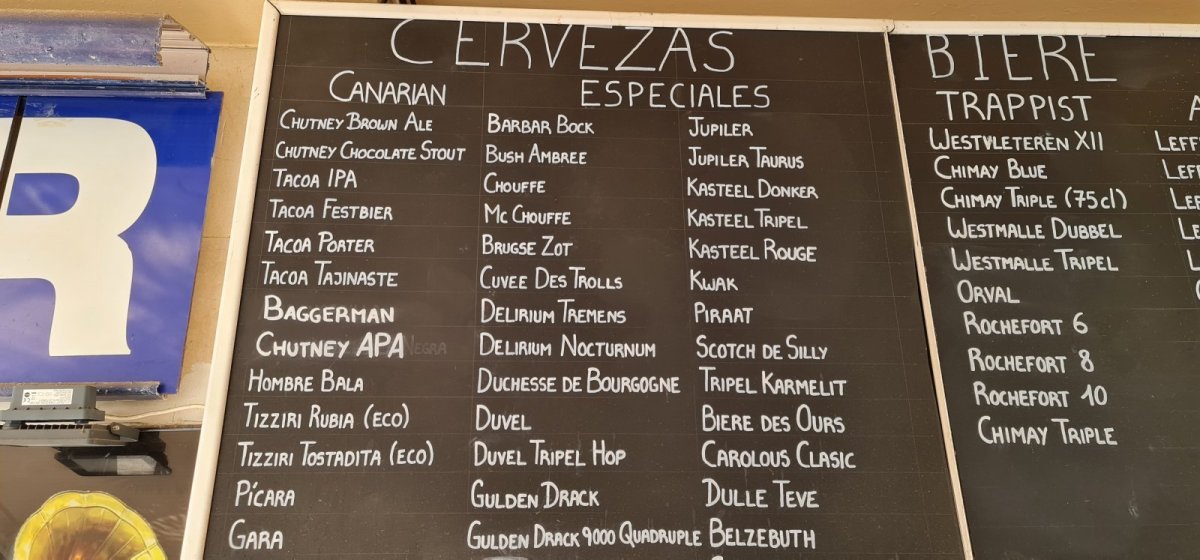 R
CERVEZAS
CANARIAN
CHUTNEY BROWN ALE
CHUTNEY CHOCOLATE STOUT
TACOA IPA
TACOA FESTBIER
TACOA PORTER
TACOA TAJINASTE
BAGGERMAN
CHUTNEY APA
HOMBRE BALA
TIZZIRI RUBIA (ECO)
TIZZIRI TOSTADITA (ECO)
PÍCARA
GARA
ESPECIALES
BARBAR BOCK
BUSH AMBREE
CHOUFFE
MC CHOUFFE
BRUGSE ZOT
CUVEE DES TROLLS
DELIRIUM TREMENS
DELIRIUM NOCTURNUM
DUCHESSE DE BOURGOGNE
DUVEL
DUVEL TRIPEL HOP
GULDEN DRACK
GULDEN DRACK 9000 QUADRUPLE
JUPILER
JUPILER TAURUS
KASTEEL DONKER
KASTEEL TRIPEL
KASTEEL ROUGE
KWAK
PIRAAT
SCOTCH DE SILLY
TRIPEL KARMELIT
BIERE DES OURS
CAROLOUS CLASIC
DULLE TEVE
BELZEBUTH
BIERE
TRAPPIST
WESTVLETEREN XII
CHIMAY BLUE
CHIMAY TRIPLE (75cl)
WESTMALLE DUBBEL
WESTMALLE TRIPEL
ORVAL
ROCHEFORT 6
ROCHEFORT 8
ROCHEFORT 10
CHIMAY TRIPLE